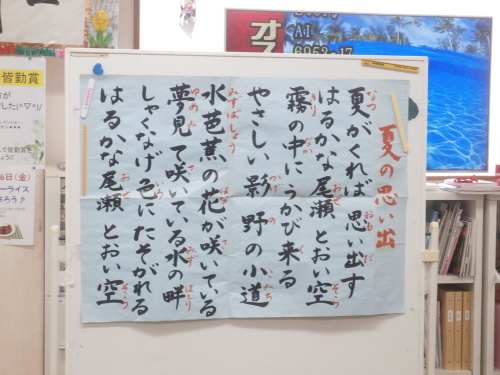 夏の思い出
夏がくれば思い出す
はるかな尾瀬とおい空
霧の中にうかび来る
やさしい影野の小道
水芭蕉の花が咲いている
夢見て咲いている水の畔
しゃくなげ色にたそがれる
はるかな尾瀬とおい空
AI
6953-17
オス
皆勤賞
した(^▽^)/
6日(金)
ーライス